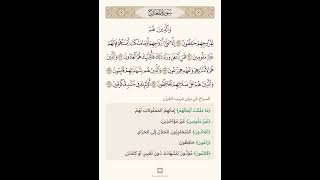 سورة المعارج
وَالَّذِينَ هُمْ
لِفُرُوجِهِمْ حَٰفِظُونَ ٢٩ إِلَّا عَلَىٰٓ أَزْوَٰجِهِمْ أَوْ مَا مَلَكَتْ أَيْمَٰنُهُمْ فَإِنَّهُمْ
غَيْرُ مَلُومِينَ ٣٠ فَمَنِ ٱبْتَغَىٰ وَرَآءَ ذَٰلِكَ فَأُو۟لَٰٓئِكَ هُمُ ٱلْعَادُونَ ٣١ وَٱلَّذِينَ
هُمْ لِأَمَٰنَٰتِهِمْ وَعَهْدِهِمْ رَٰعُونَ ٣٢ وَٱلَّذِينَ هُم بِشَهَٰدَٰتِهِمْ قَآئِمُونَ
٣٣ وَٱلَّذِينَ هُمْ عَلَىٰ صَلَاتِهِمْ يُحَافِظُونَ ٣٤ أُو۟لَٰٓئِكَ فِى جَنَّٰتٍ
السراج في بيان غريب القرآن
﴿مَا مَلَكَتْ أَيْمَانُهُمْ﴾ إِمَائِهِمُ المَمْلُوكَاتِ لَهُمْ.
﴿غَيْرُ مَلُومِينَ﴾ غَيْرُ مُؤَاخَذِينَ.
﴿الْعَادُونَ﴾ المُتَجَاوِزُونَ الحَلَالَ إِلَى الحَرَامِ.
﴿رَاعُونَ﴾ حَافِظُونَ.
﴿قَائِمُونَ﴾ مُؤَدُّونَ لِلشَّهَادَاتِ دُونَ تَغْيِيرٍ، أَوْ كِتْمَانٍ.